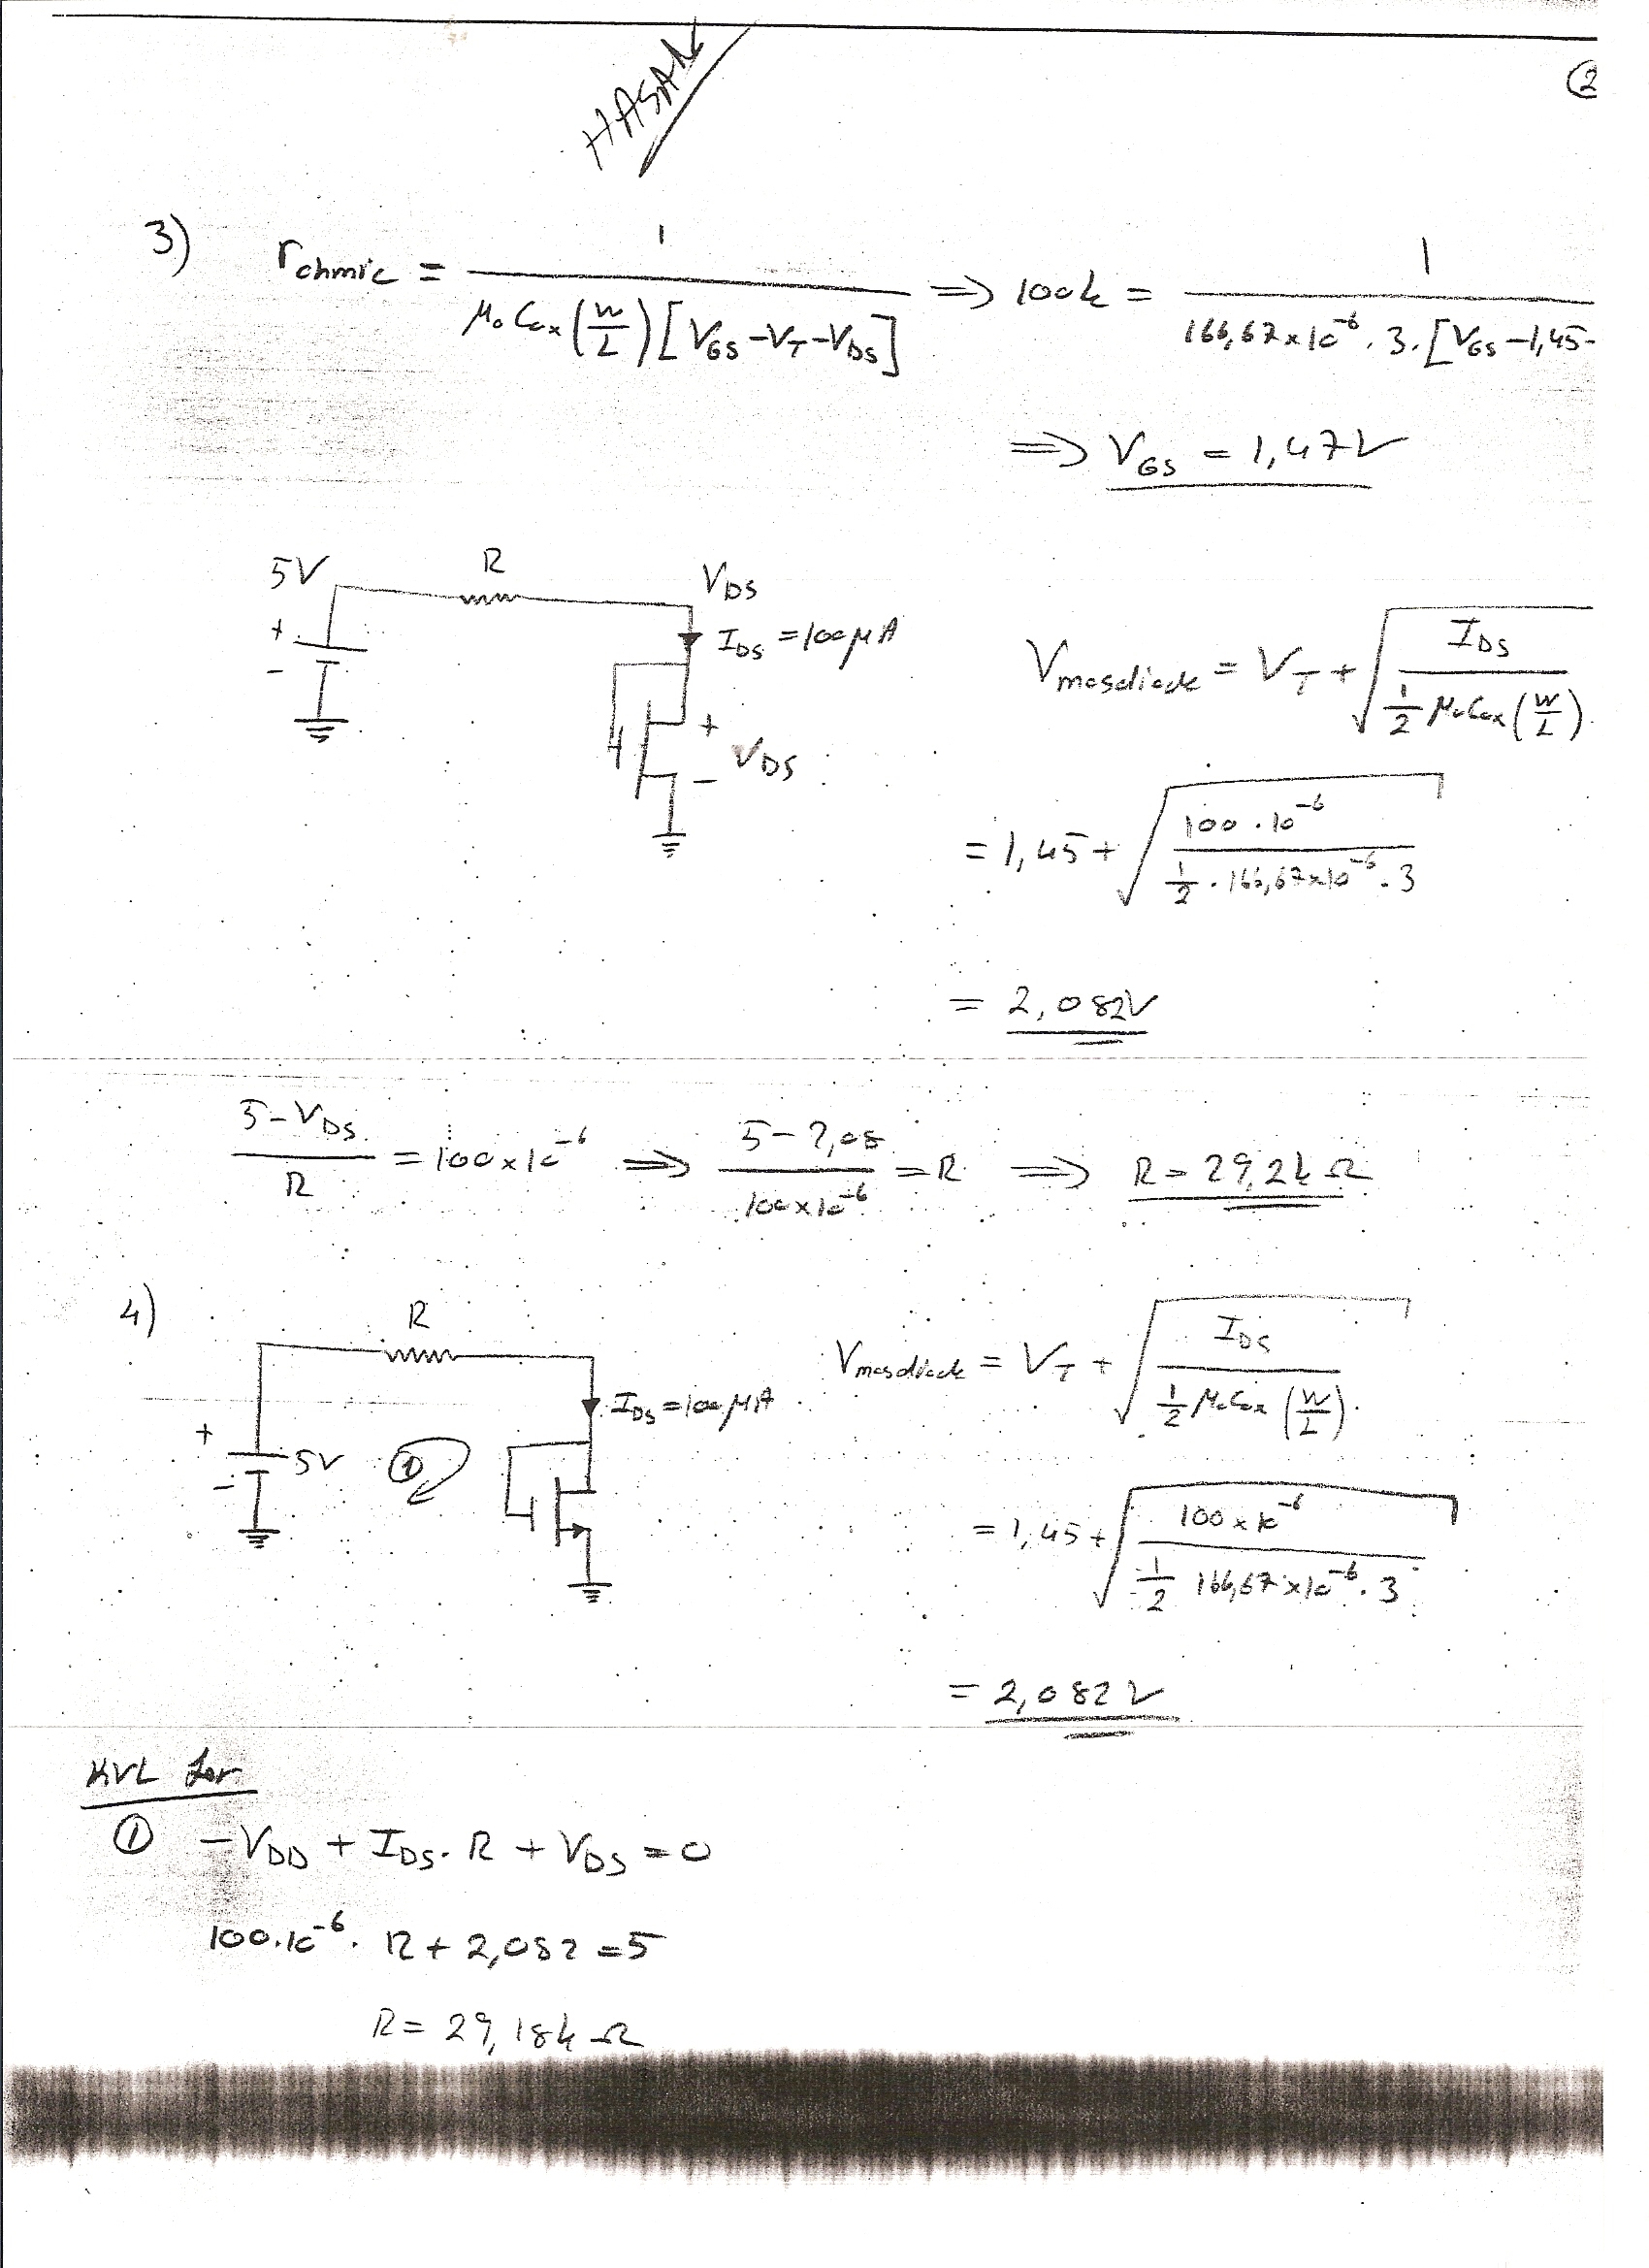 ②
HASAN
3) r_ohmic = 1 / (μ₀ Cox (W/L) [V_GS - V_T - V_DS]) ⇒ 100k = 1 / (166,67 x 10⁻⁶ . 3 . [V_GS - 1,45 -
⇒ V_GS = 1,47V
5V R V_DS
+ - I_DS = 100μA
V_mosdiode = V_T + √(I_DS / (1/2 μ₀ Cox (W/L)))
+ V_DS -
= 1,45 + √(100 . 10⁻⁶ / (1/2 . 166,67 x 10⁻⁶ . 3))
= 2,082V
(5 - V_DS) / R = 100 x 10⁻⁶ ⇒ (5 - 2,08) / (100 x 10⁻⁶) = R ⇒ R = 29,2k Ω
4) R
V_mosdiode = V_T + √(I_DS / (1/2 μ₀ Cox (W/L)))
I_DS = 100μA
+ - 5V ①
= 1,45 + √(100 x 10⁻⁶ / (1/2 166,67 x 10⁻⁶ . 3))
= 2,082 V
KVL for
① -V_DD + I_DS . R + V_DS = 0
100.10⁻⁶ . R + 2,082 = 5
R = 29,18k Ω